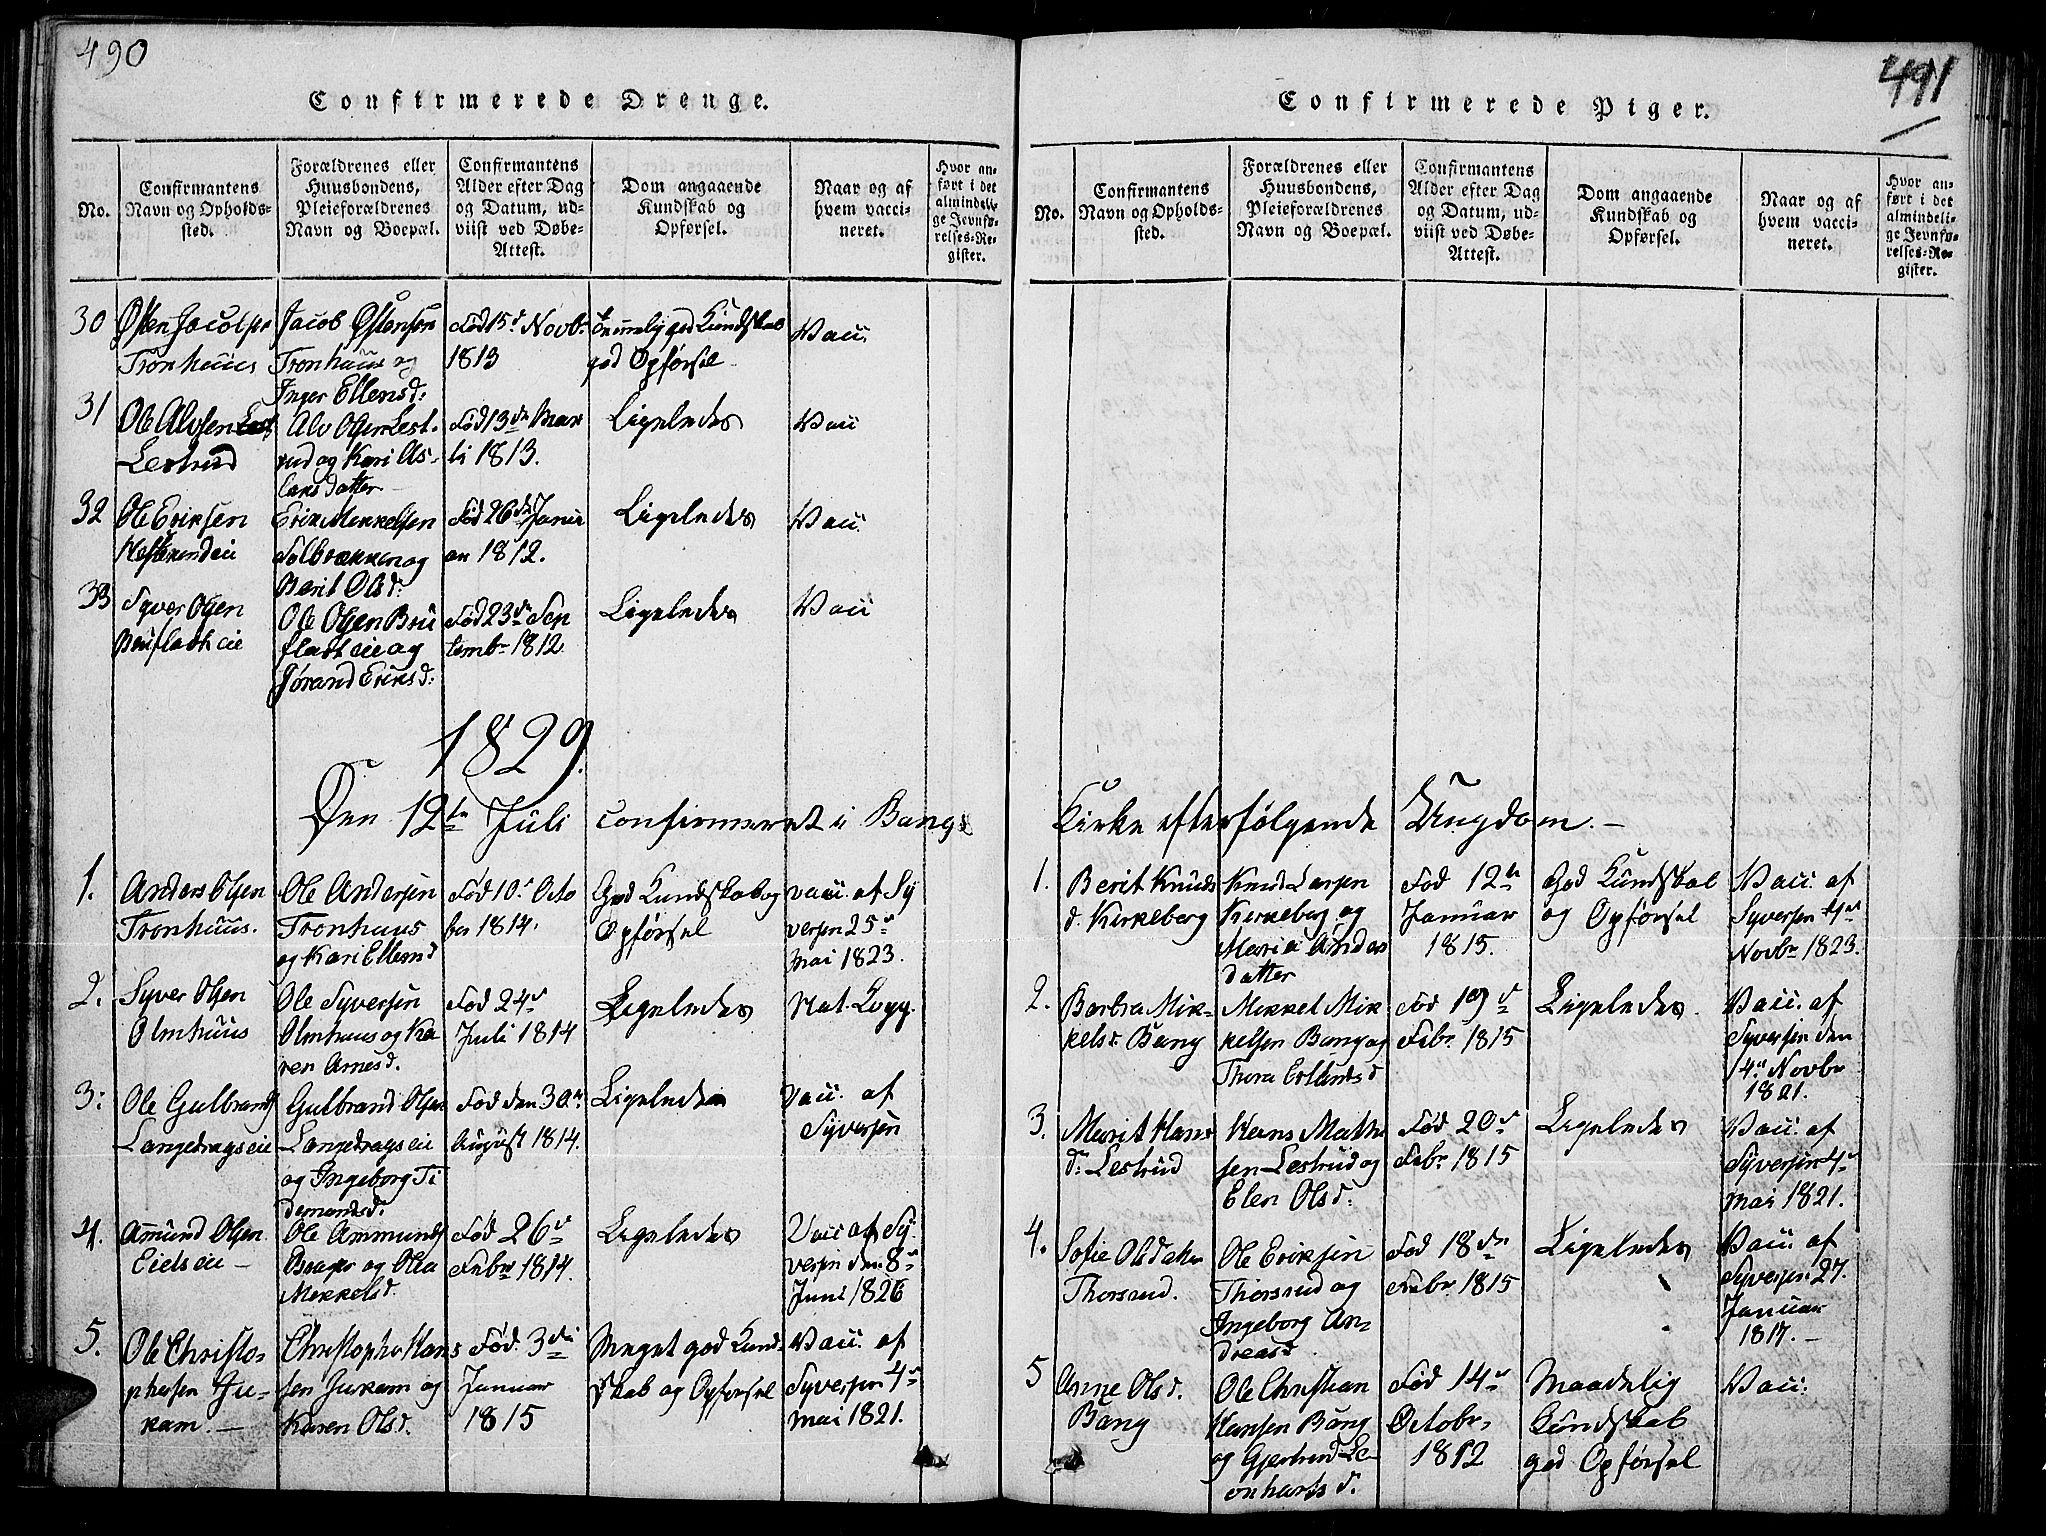 490
Confirmerede Drenge.
No.
Confirmantens
Navn og Opholds-
sted.
Forældrenes eller
Huusbondens,
Pleieforældrenes
Navn og Boepæl.
Confirmantens
Alder efter Dag
og Datum, ud-
viist ved Døbe-
Attest.
Dom angaaende
Kundskab og
Opførsel.
Naar og af
hvem vacci-
neret.
Hvor an-
ført i det
almindeli-
ge Jevnfø-
relses-Re-
gister.
30
Østen Jacobsen
Tronhuus
Jacob Østensen
Tronhuus og
Inger Ellensd:
Fød 15d Novbr
1813
temmelig god Kundskab
god Opførsel
Vacc.
31
Ole Alvsen
Lestrud
Alv Olsen Lest-
rud og Kari As-
laksdatter
Fød 13de Mar
ti 1813.
Ligeledes
Vacc
32
Ole Eriksen
Erik Mekkelsen
Følbrækken og
Berit Olsd:
Fød 26de Janu
ar 1812.
Ligeledes
Vacc.
33
Syver Olsen
Brufladt eie
Ole Olsen Bru
fladt eie og
Jørand Eriksd:
Fød 23de Sep
tembr 1812
Ligeledes
Vacc
1829.
Den 12te Juli confirmeret i Bangs
1.
Anders Olsen
Tronhuus.
Ole Andersen
Tronhuus
og Kari Ellensd
Fød 10d Octo
ber 1814.
God Kundskab og
Opførsel
vacc. af Sy
versen 25d
mai 1823.
2.
Syver Olsen
Olmhuus
Ole Syversen
Olmhuus og Ka
ren Arnesd.
Fød 24d
Juli 1814
Ligeledes
Nat. Kopp.
3:
Ole Gulbrands
Langedrags eie
Gulbrand Olsen
Langedrags eie
og Ingeborg Ti
demandsd.
Fød den 30te
August 1814.
Ligeledes
vacc. af
Syversen
4.
Amund Olsen
Eids eie
Ole Ammunds
Brager og Olia
Mekkelsd.
Fød 26d
Febr 1814.
Ligeledes
Vacc af Sy
versen den 8d
Juni 1826
5.
Ole Christo-
phersen Ju-
kam.
Christopher Hans
sen Jukam og
Karen Olsd.
Fød 3die
Januar
1815
Meget god Kund-
skab og Opførsel
Vacc. af
Syversen 4d
mai 1821.
491
Confirmerede Piger.
No.
Confirmantens
Navn og Opholds-
sted.
Forældrenes eller
Huusbondens,
Pleieforældrenes
Navn og Boepæl.
Confirmantens
Alder efter Dag
og Datum, ud-
viist ved Døbe-
Attest.
Dom angaaende
Kundskab og
Opførsel.
Naar og af
hvem vacci-
neret.
Hvor an-
ført i det
almindeli-
ge Jevnfø-
relses-Re-
gister.
Kirke efterfølgende Ungdom.
1.
Berit Knuds
d. Kirkeberg
Knud Larsen
Kirkeberg og
Maria Anders
datter
Fød 12te
Januar
1815.
God Kundskab
og Opførsel
Vacc. af
Syversen 4d
Novbr 1823.
2.
Barbra Mik-
kelsd. Bang
Mekkel Mik
kelsen Bang og
Thora Erlandsd
Fød 19d
Febr. 1815
Ligeledes.
Vacc. af
Syversen den
4d Novbr
1821.
3.
Marit Hans
d: Lestrud
Hans Mathi
sen Lestrud og
Elen Olsd.
Fød 20d
Febr. 1815
Ligeledes
Vacc. af
Syversen 4d
mai 1821.
4.
Sofie Olsdatter
Thorsrud.
Ole Eriksen
Thorsrud og
Ingeborg An-
dreasd.
Fød 18de
Febr 1815
Ligeledes
Vacc. af
Syversen 27.
Januar
1817.
5
Anne Olsd.
Bang
Ole Christian
Hansen Bang
og Gjertrud Le-
onhartsd.
Fød 14d
Octobr.
1812
Maadelig
Kundskab
god Opførsel
Vacc.